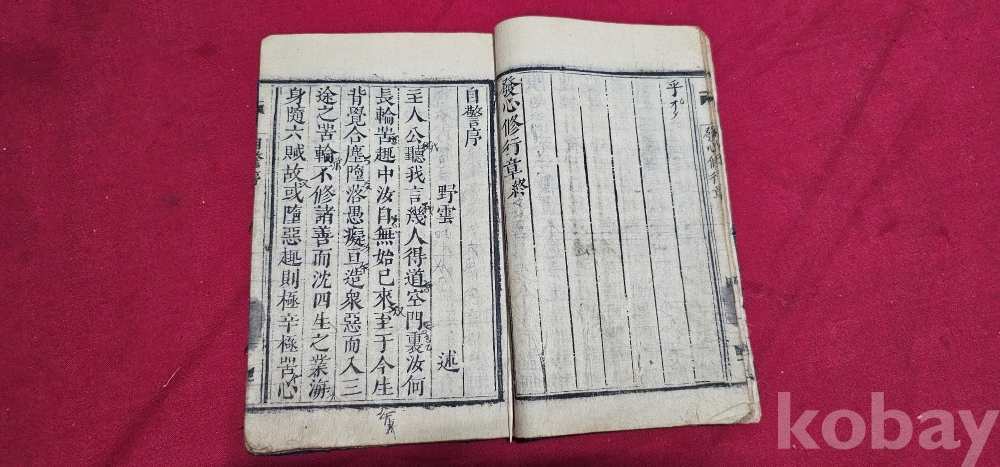 乎
發心修行章終
自警序
野雲 述
主人公聽我言幾人得道空門裏汝何
長輪苦趣中汝自無始已來至于今生
背覺合塵墮落愚癡恒造衆惡而入三
途之苦輪不修諸善而沈四生之業海
身隨六賊故或墮惡趣則極辛極苦心
發心修行章
自警序
kobay